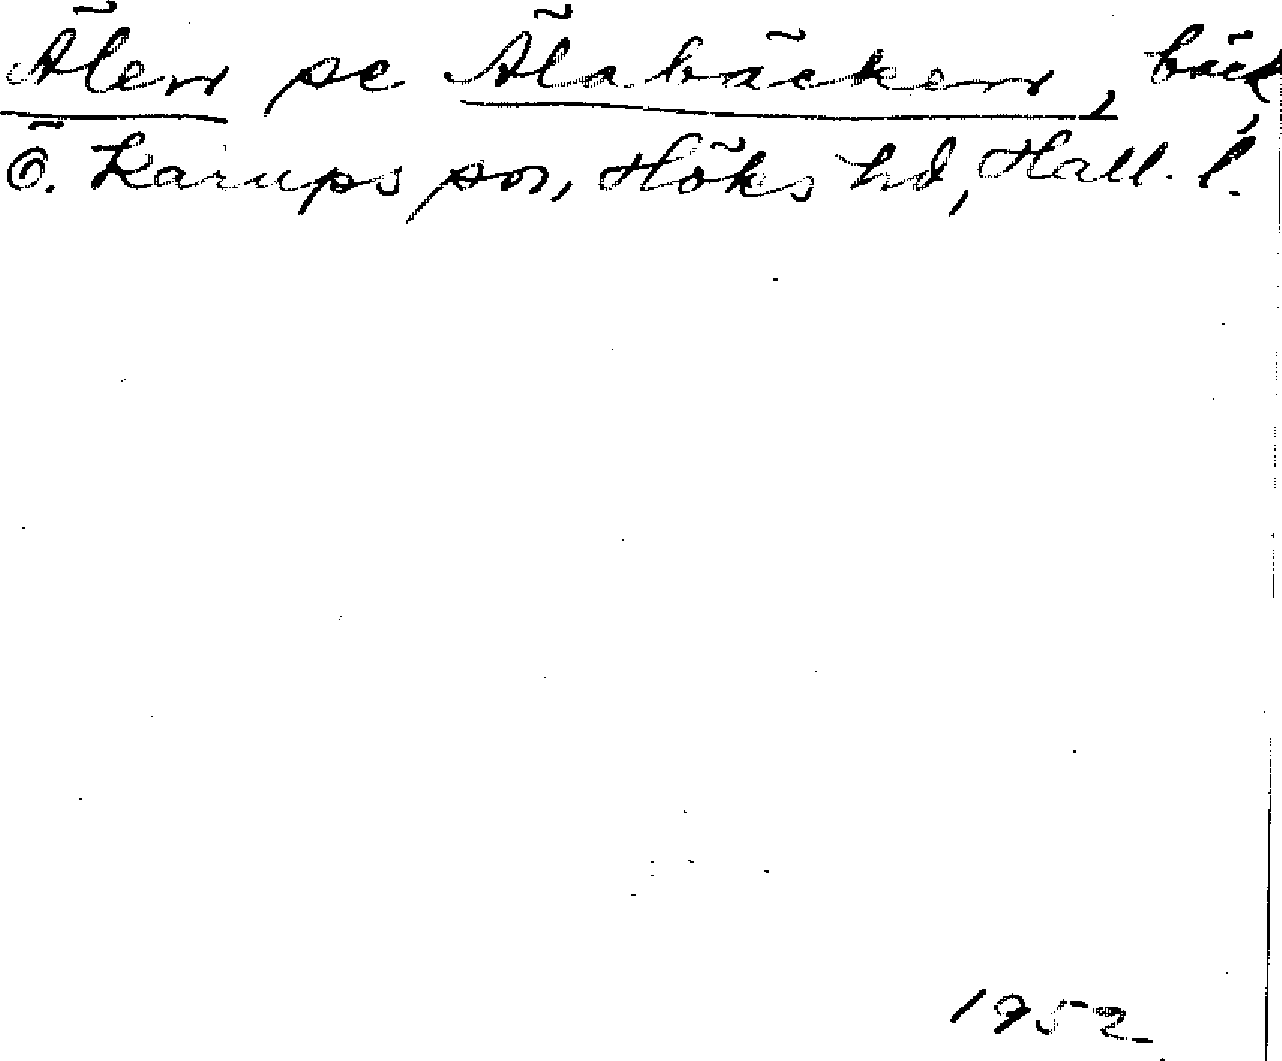 Älen se Älabäcken, bäck,
Ö. Karups sn, Höks hd, Hall. l.
1952